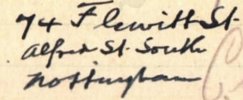 74 Flewitt St.
Alfred St. South
Nottingham